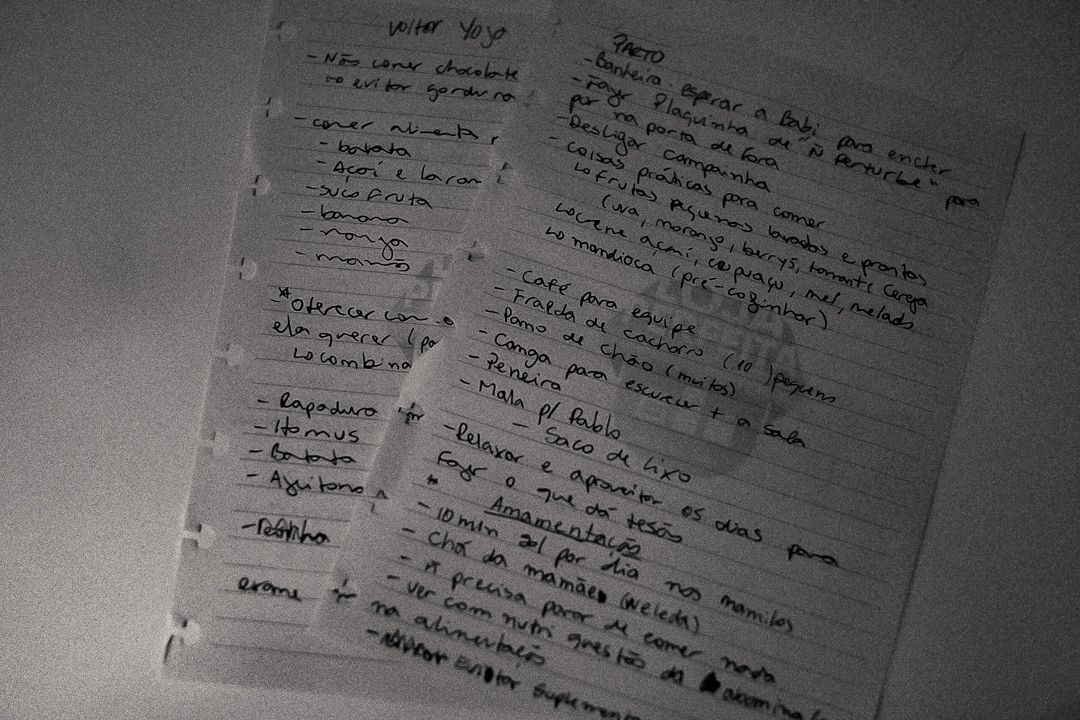 voltar Yoga
- Não comer chocolate
↳ evitar gordura
- comer aliment
- batata
- Açaí e laran
- suco fruta
- banana
- manga
- mamão
* oferecer com
ela querer (po
↳ combina
- Rapadura
- Homus
- Batata
- Azeitona
exame
PARTO
- Banheira, esperar a Babi para encher
- Fazer Plaquinha de "Ñ Perturbe" para
por na porta de fora
- Desligar campainha
- coisas práticas para comer
↳ frutas pequenas lavadas e prontas
(uva, morango, berrys, tomante cereja
↳ creme açaí, cupuaçu, mel, melado
↳ mandioca (pré-cozinhar)
- Café para equipe
- Fralda de cachorro (10) pequem
- Pano de chão (muitos)
- Canga para escurecer + a sala
- Peneira
- Mala p/ Pablo
- Saco de lixo
- Relaxar e aproveitar os dias para
Fazer o que dá tesão
* Amamentação
- 10 min sol por dia nos mamilos
- Chá da mamãe (weleda)
- Ñ precisa parar de comer nada
- ver com nutri questão da
na alimentação
- Evitar suplement